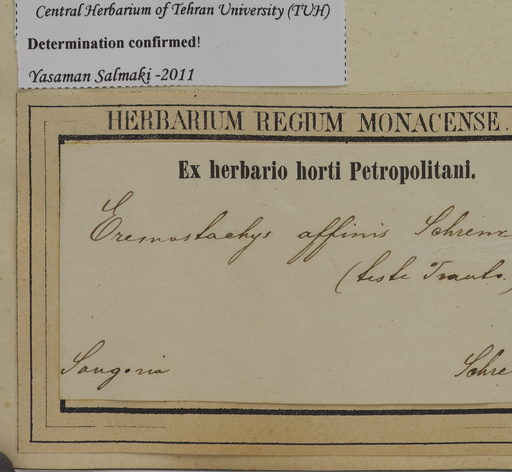 Central Herbarium of Tehran University (TUH)
Determination confirmed!
Yasaman Salmaki -2011
HERBARIUM REGIUM MONACENSE.
Ex herbario horti Petropolitani.
Eremostachys affinis Schrenk
(teste Trautv.)
Songoria Schre